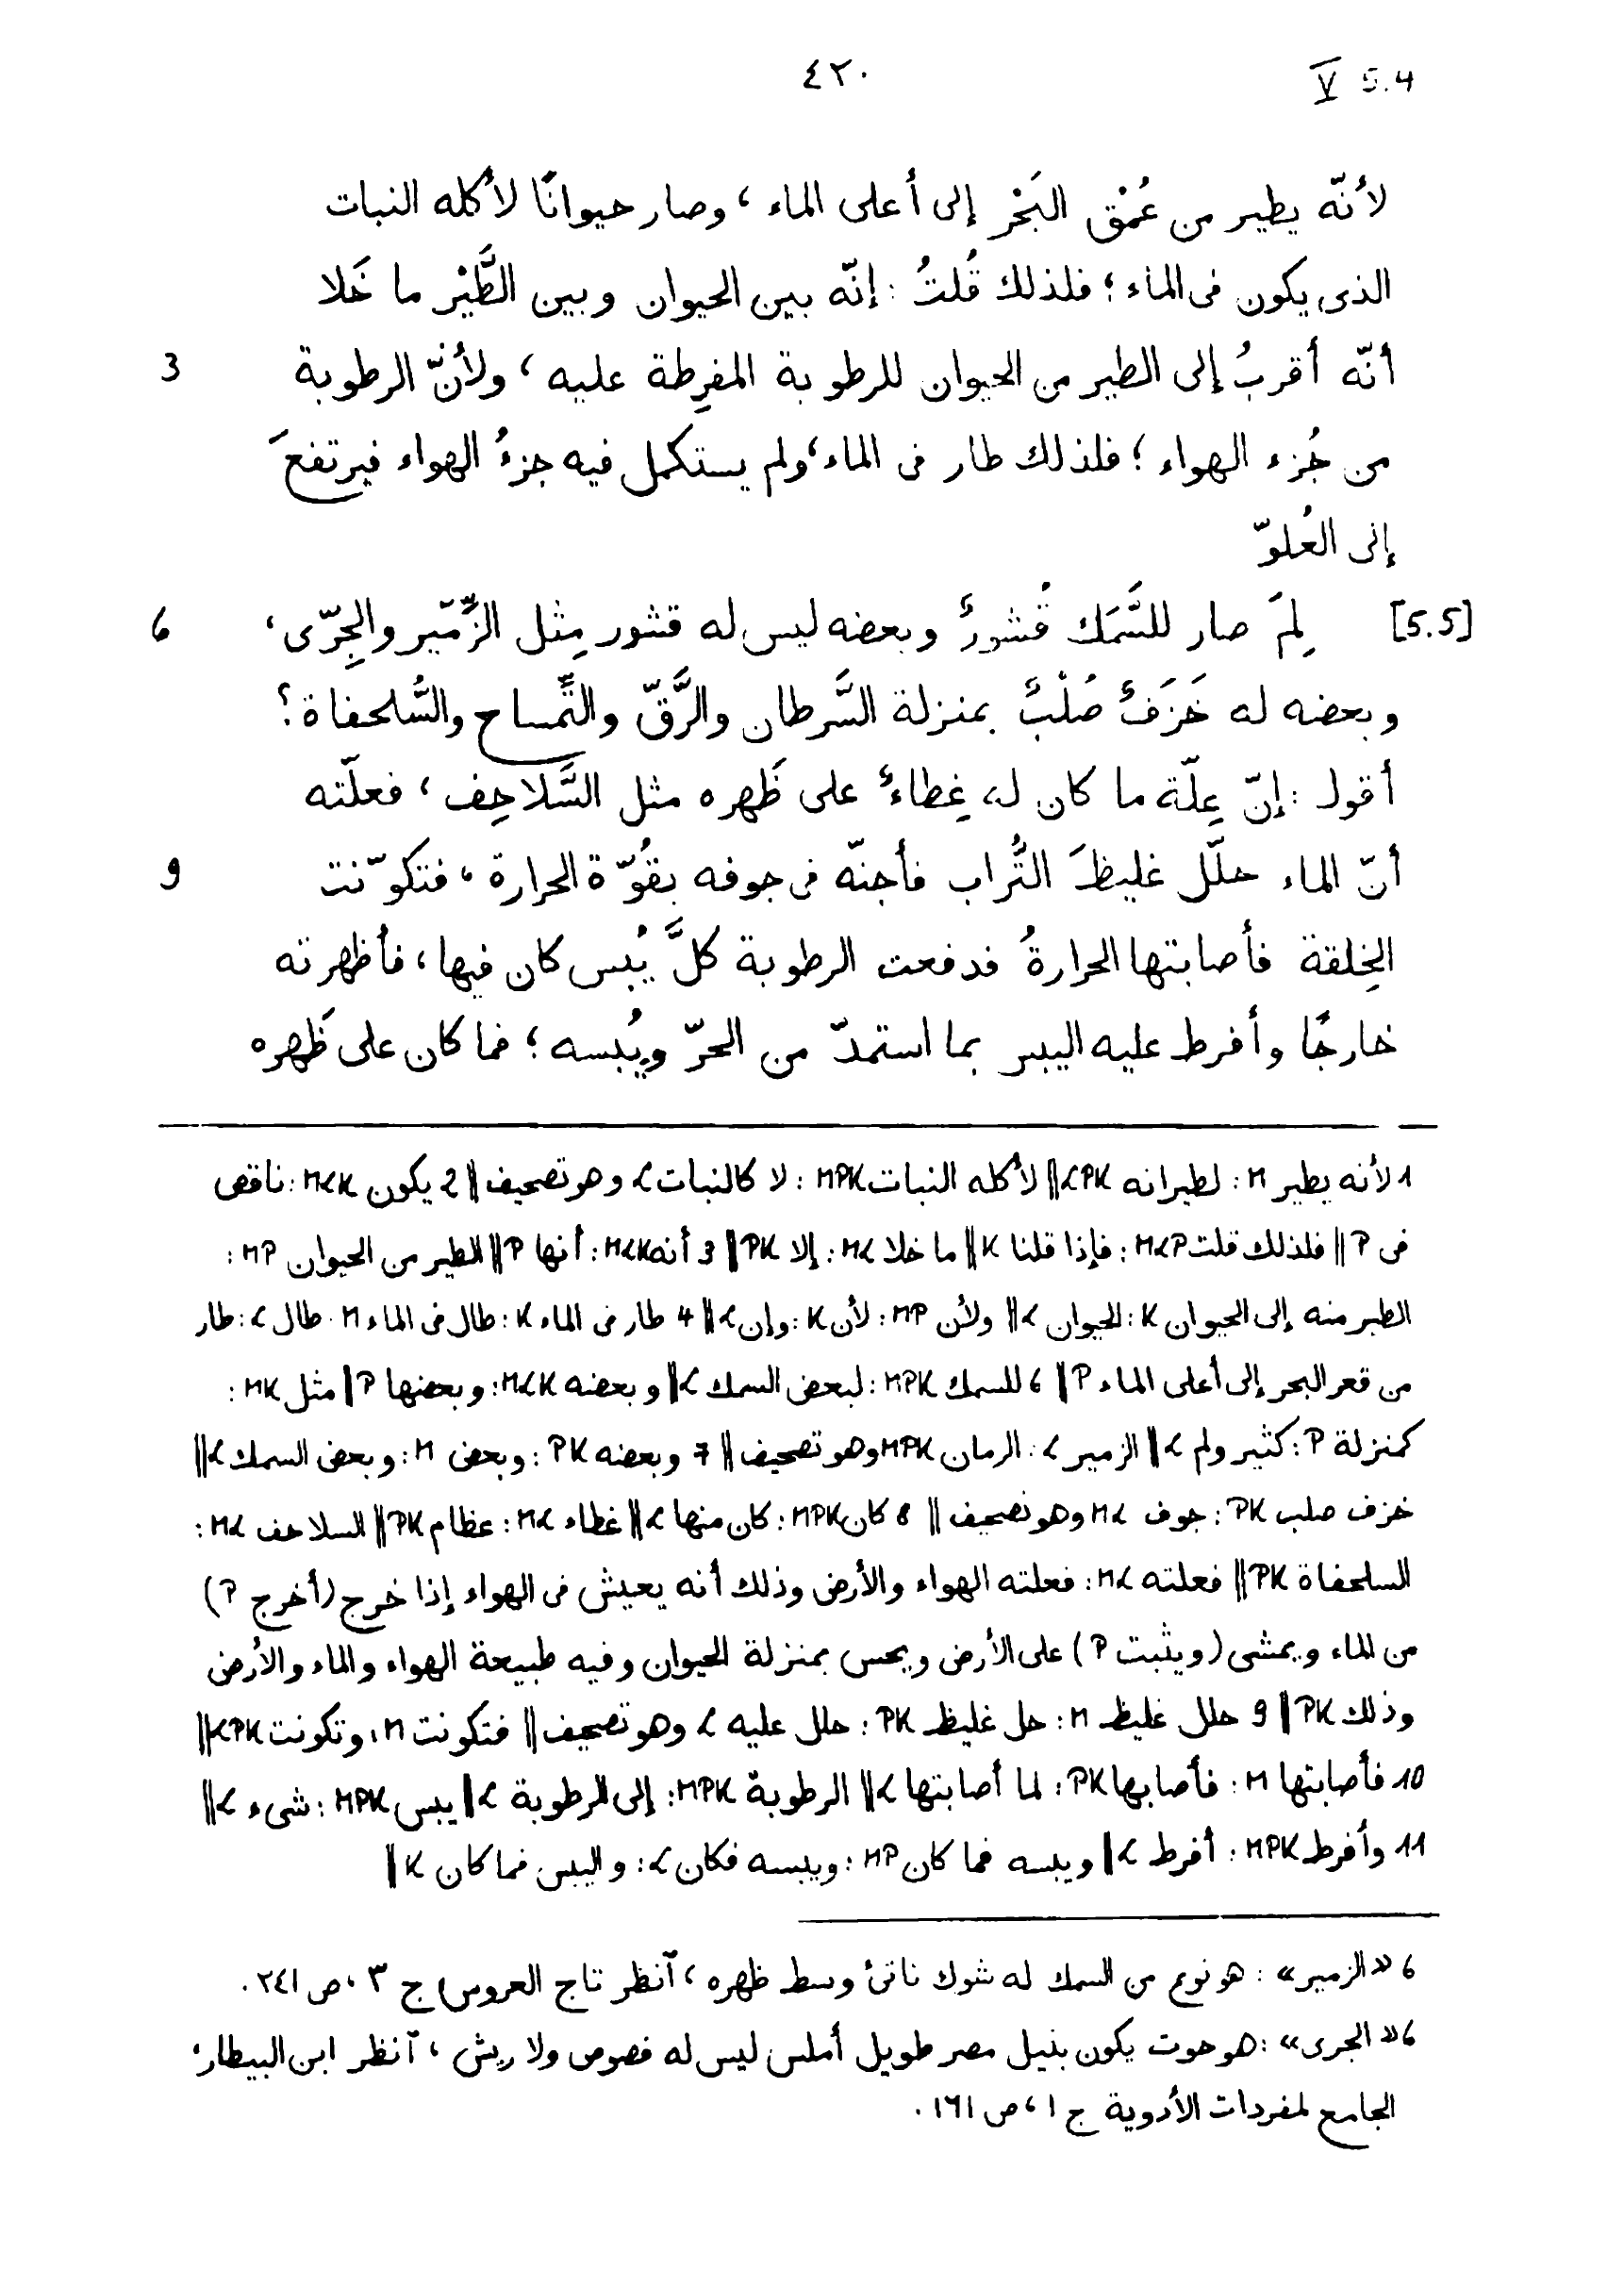 V 5.4 ٤٢٠
لأنّه يطير من عُمْق البَحْر إلى أعلى الماء، وصار حيوانًا لأكله النبات
الذى يكون فى الماء؛ فلذلك قُلتُ: إنّه بين الحيوان وبين الطَّيْر ما خَلا
أنّه أقربُ إلى الطير من الحيوان للرطوبة المفرِطة عليه، ولأنّ الرطوبة 3
من جُزء الهواء؛ فلذلك طار فى الماء، ولم يستكمل فيه جزءُ الهواء فيرتفعَ
إلى العُلوّ
[5.5] لِمَ صار للسَّمَك قُشورٌ وبعضه ليس له قشور مِثل الزِّمّير والجِرّى، 6
وبعضه له خَزَفٌ صُلْبٌ بمنزلة السَّرطان والرَّقّ والتِّمساح والسُّلحفاة؟
أقول: إنّ عِلّة ما كان له غِطاءٌ على ظَهره مثل السَّلاحِف، فعلّته
أنّ الماء حلّل غليظَ التُّراب فأجنّه فى جوفه بقُوّة الحرارة، فتكوّنت 9
الخِلقة فأصابتها الحرارةُ فدفعت الرطوبة كلَّ يُبس كان فيها، فأظهرته
خارجًا وأفرط عليه اليبس بما استمدّ من الحرّ ويُبسه؛ فما كان على ظَهره
1 لأنه يطير M: لطيرانه LPK || لأكله النبات MPK: لا كالنبات L وهو تصحيف || 2 يكون MLK: ناقص
فى P || فلذلك قلت MLP: فإذا قلنا K || ما خلا ML: إلا PK || 3 أنه MLK: أنها P || الطير من الحيوان MP:
الطير منه إلى الحيوان K: الحيوان L || ولأن MP: لأن K: وإن L || 4 طار فى الماء K: طال فى الماء M: طال L: طار
من قعر البحر إلى أعلى الماء P || 6 للسمك MPK: لبعض السمك L || وبعضه MLK: وبعضها P || مثل MK:
كمنزلة P: كثير ولم L || الزمير L: الرمان MPK وهو تصحيف || 7 وبعضه PK: وبعض M: وبعض السمك L ||
خزف صلب PK: جوف ML وهو تصحيف || 8 كان MPK: كان منها L || غطاء ML: عظام PK || السلاحف ML:
السلحفاة PK || فعلته ML: فعلته الهواء والأرض وذلك أنه يعيش فى الهواء إذا خرج (أخرج P)
من الماء ويمشى (ويثبت P) على الأرض ويحس بمنزلة الحيوان وفيه طبيعة الهواء والماء والأرض
وذلك PK || 9 حلل غليظ M: حل غليظ PK: حلل عليه L وهو تصحيف || فتكونت M: وتكونت LPK ||
10 فأصابتها M: فأصابها PK: لما أصابتها L || الرطوبة MPK: إلى الرطوبة L || يبس MPK: شىء L ||
11 وأفرط MPK: أفرط L || ويبسه فما كان MP: ويبسه فكان L: واليبس فما كان K ||
6 «الزمير»: هو نوع من السمك له شوك ناتئ وسط ظهره، آنظر تاج العروس ج ٣، ص ٢٤١.
6 «الجرى»: هو حوت يكون بنيل مصر طويل أملس ليس له فصوص ولا ريش، آنظر ابن البيطار،
الجامع لمفردات الأدوية ج ١، ص ١٦١.